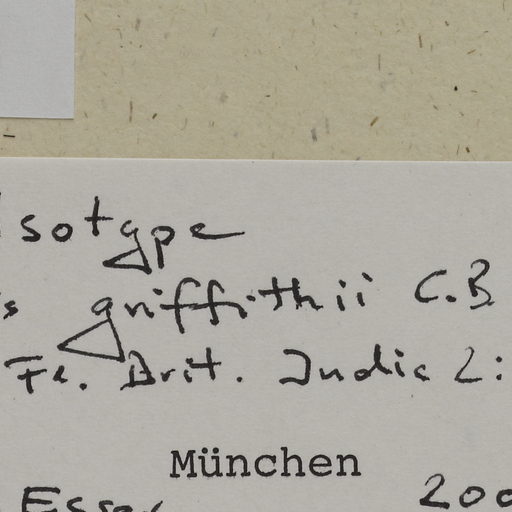 Isotype
s griffithii C.B
Fl. Brit. India 2:
München
Esser 200